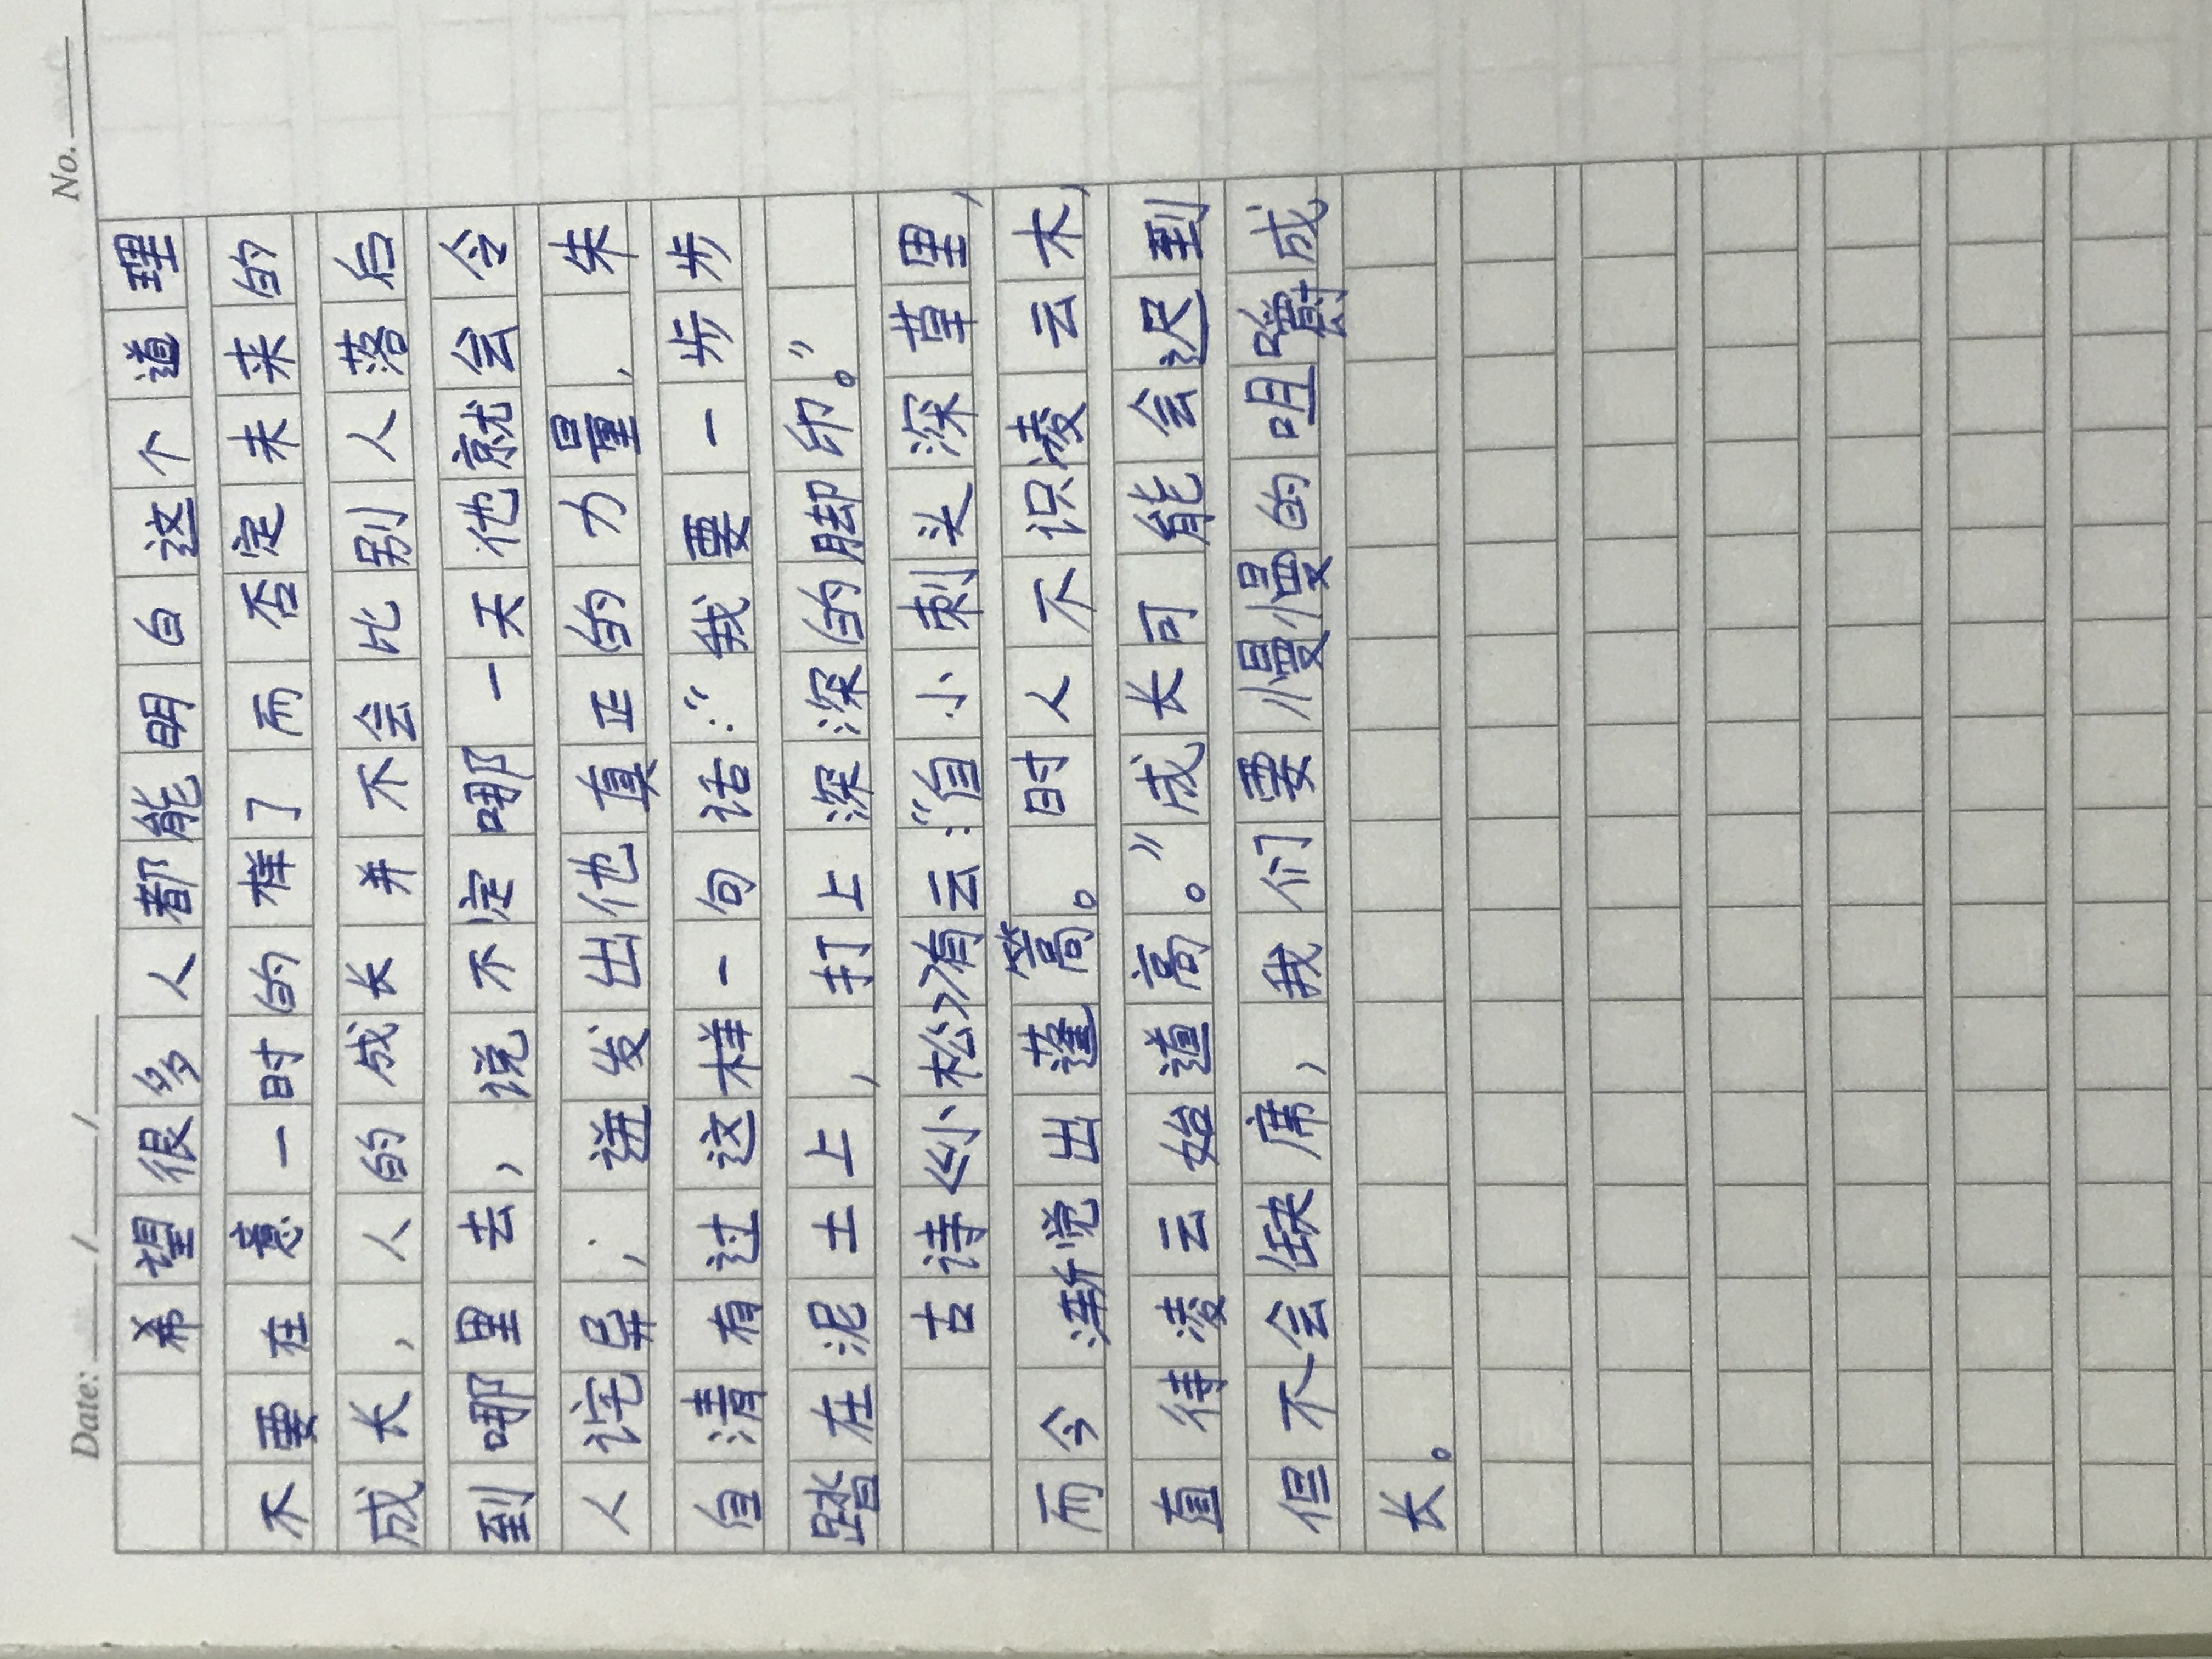 No.
Date: / /
希望很多人都能明白这个道理
不要在意一时的样了而否定未来的
成长，人的成长并不会比别人落后
到哪里去，说不定哪一天他就会令
人诧异，迸发出他真正的力量，朱
自清有过这样一句话：“我要一步步
踏在泥土上，打上深深的脚印。”
古诗《小松》有云：“自小刺头深草里，
而今渐觉出蓬蒿。时人不识凌云木，
直待凌云始道高。”成长可能会迟到
但不会缺席，我们要慢慢的咀嚼成
长。